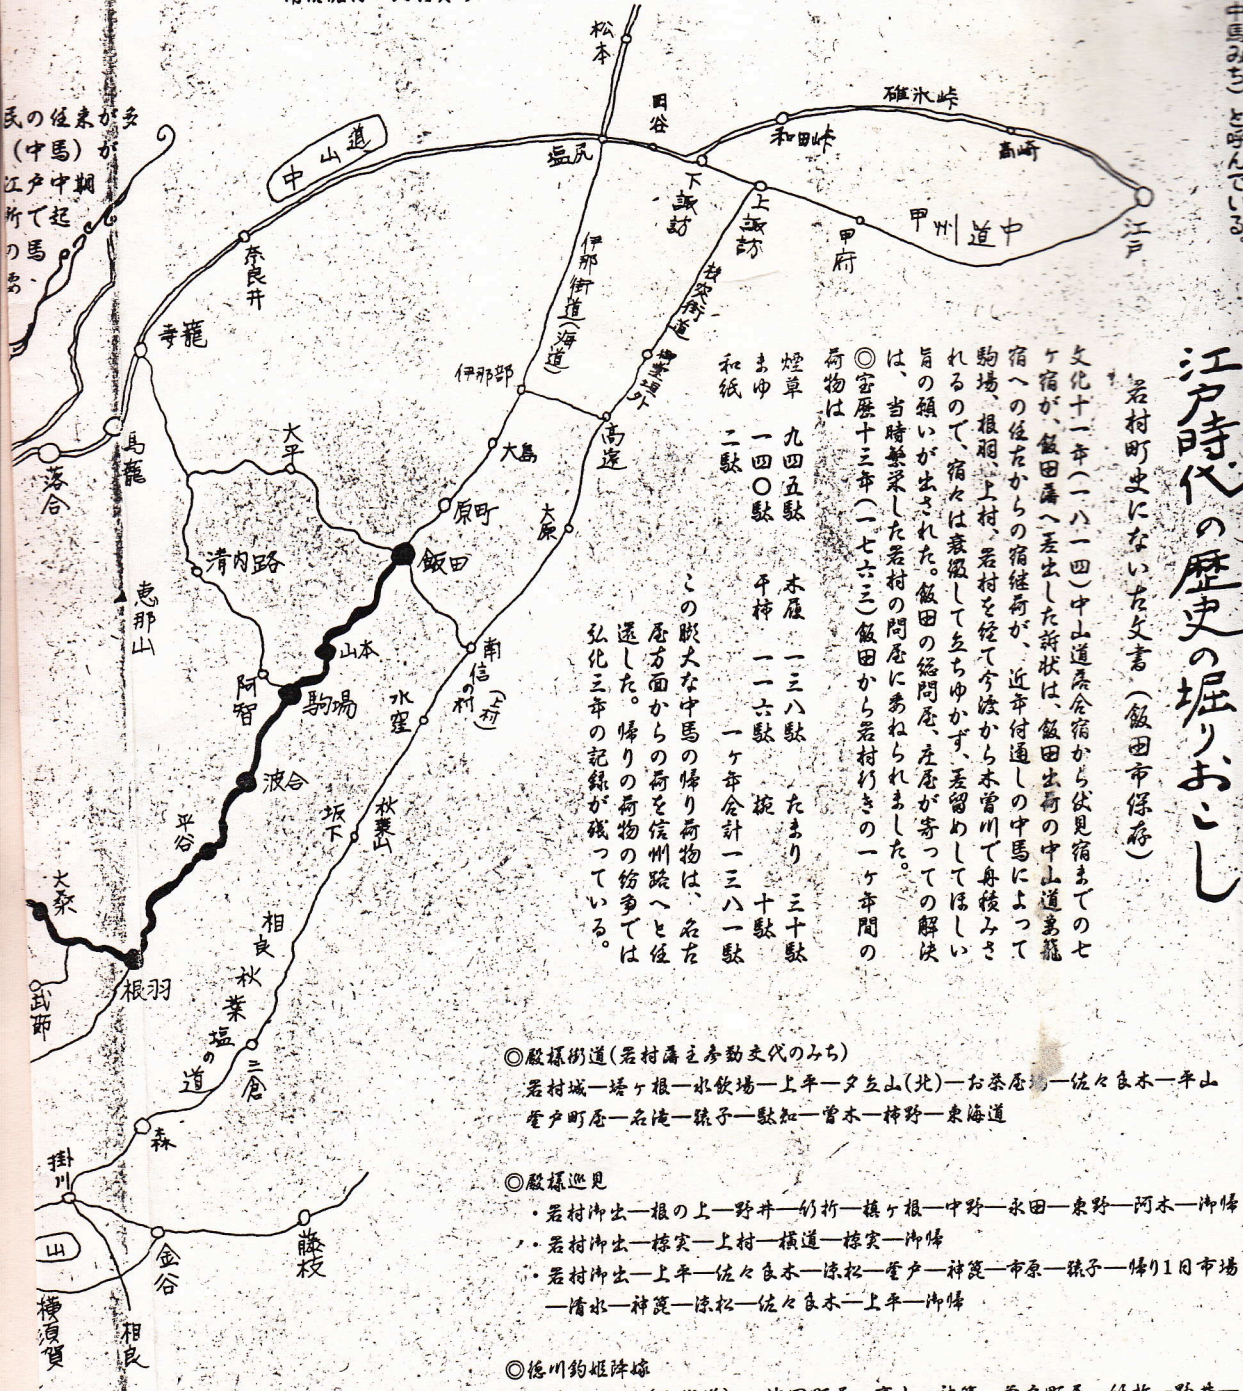 中馬みち）と呼んでいる。
江戸時代の歴史の堀りおこし
岩村町史にない古文書（飯田市保存）
文化十一年（一八一四）中山道落合宿から伏見宿までの七
ケ宿が、飯田藩へ差出した訴状は、飯田出荷の中山道馬籠
宿への往古からの宿継荷が、近年付通しの中馬によって
駒場、根羽、上村、岩村を経て今渡から木曽川で舟積みさ
れるので、宿々は衰微して立ちゆかず、差留めしてほしい
旨の願いが出された。飯田の総問屋、庄屋が寄っての解決
は、当時繁栄した岩村の問屋に委ねられました。
◎宝暦十三年（一七六三）飯田から岩村行きの一ケ年間の
荷物は
煙草 九四五駄 木履 一三八駄 たまり 三十駄
まゆ 一四〇駄 干柿 一一六駄 椀 十駄
和紙 二駄 一ケ年合計一三八一駄
この膨大な中馬の帰り荷物は、名古
屋方面からの荷を信州路へと往
還した。帰りの荷物の紛争では
弘化三年の記録が残っている。
民の往来が多
（中馬）が
江戸中期
所で起
の馬、
松本
塩尻
田谷
下諏訪
和田峠
碓氷峠
高崎
江戸
上諏訪
甲府
甲州道中
中山道
奈良井
寺籠
馬籠
落合
恵那山
伊那街道（海道）
杖突街道
御堂垣外
伊那部
高遠
大島
原町
大原
飯田
大平
清内路
阿智
山本
駒場
波合
平谷
根羽
大桑
武節
南信の村
（上村）
水窪
秋葉山
坂下
相良
秋葉
塩の道
三倉
森
掛川
金谷
藤枝
山
横須賀
相良
◎殿様街道（岩村藩主参勤交代のみち）
岩村城―塔ケ根―水飲場―上平―夕立山（北）―お茶屋場―佐々良木―平山
釜戸町屋―名滝―猿子―駄知―曽木―柿野―東海道
◎殿様巡見
・岩村御出―根の上―野井―竹折―槙ケ根―中野―永田―東野―阿木―御帰
・岩村御出―椋実―上村―横道―椋実―御帰
・岩村御出―上平―佐々良木―涼松―釜戸―神箆―市原―猿子―帰り1日市場
―清水―神箆―涼松―佐々良木―上平―御帰
◎徳川釣姫降嫁